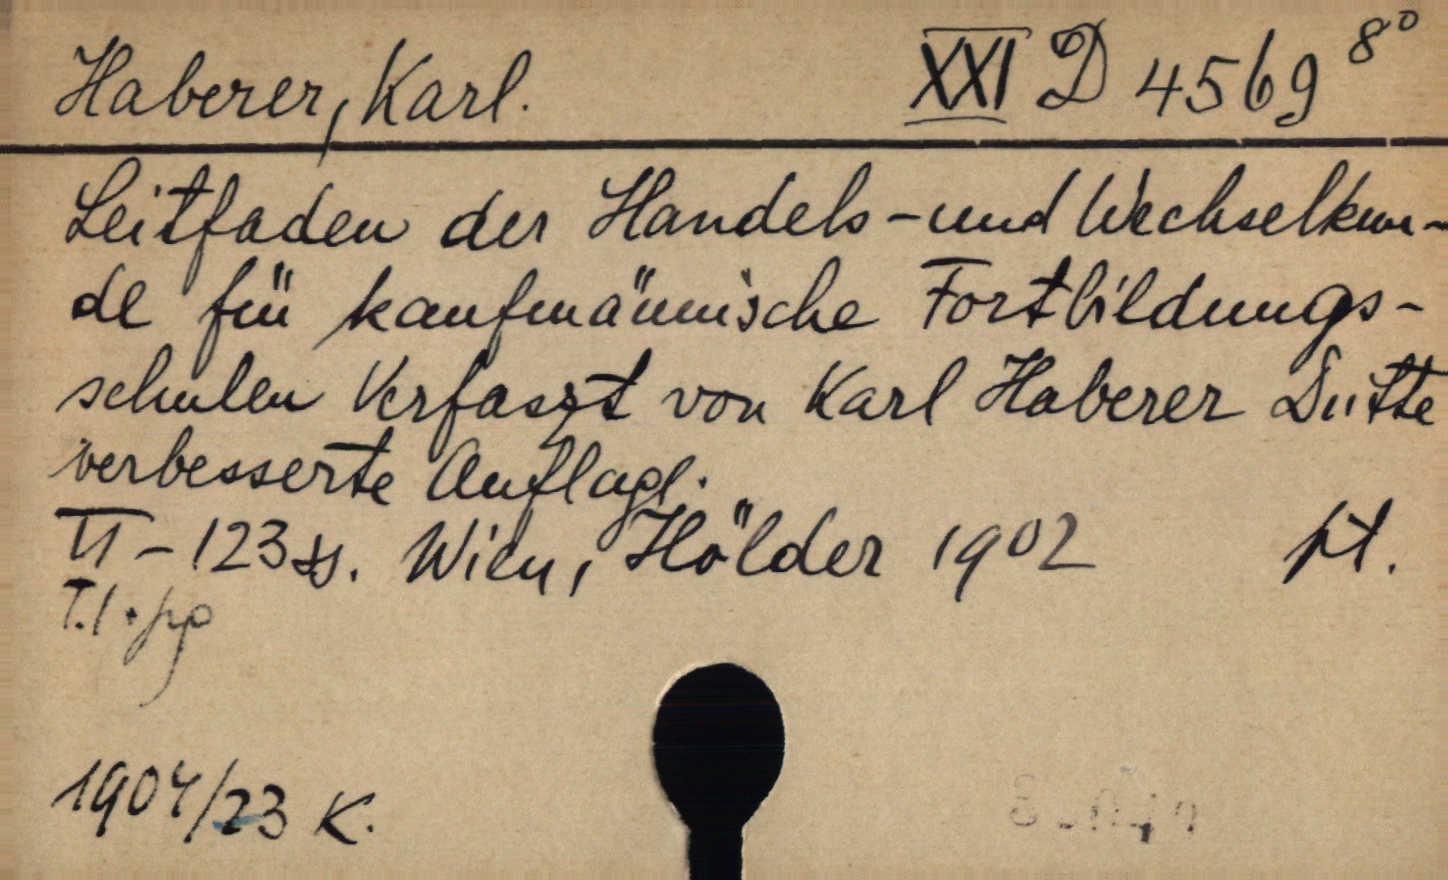 Haberer, Karl. XXI D 4569 8°
Leitfaden der Handels- und Wechselkun-
de für kaufmännische Fortbildungs-
schulen Verfaszt von Karl Haberer Dritte
verbesserte Auflage.
VI - 123 s. Wien, Hölder 1902 pt.
T.1.
1904/23 K.